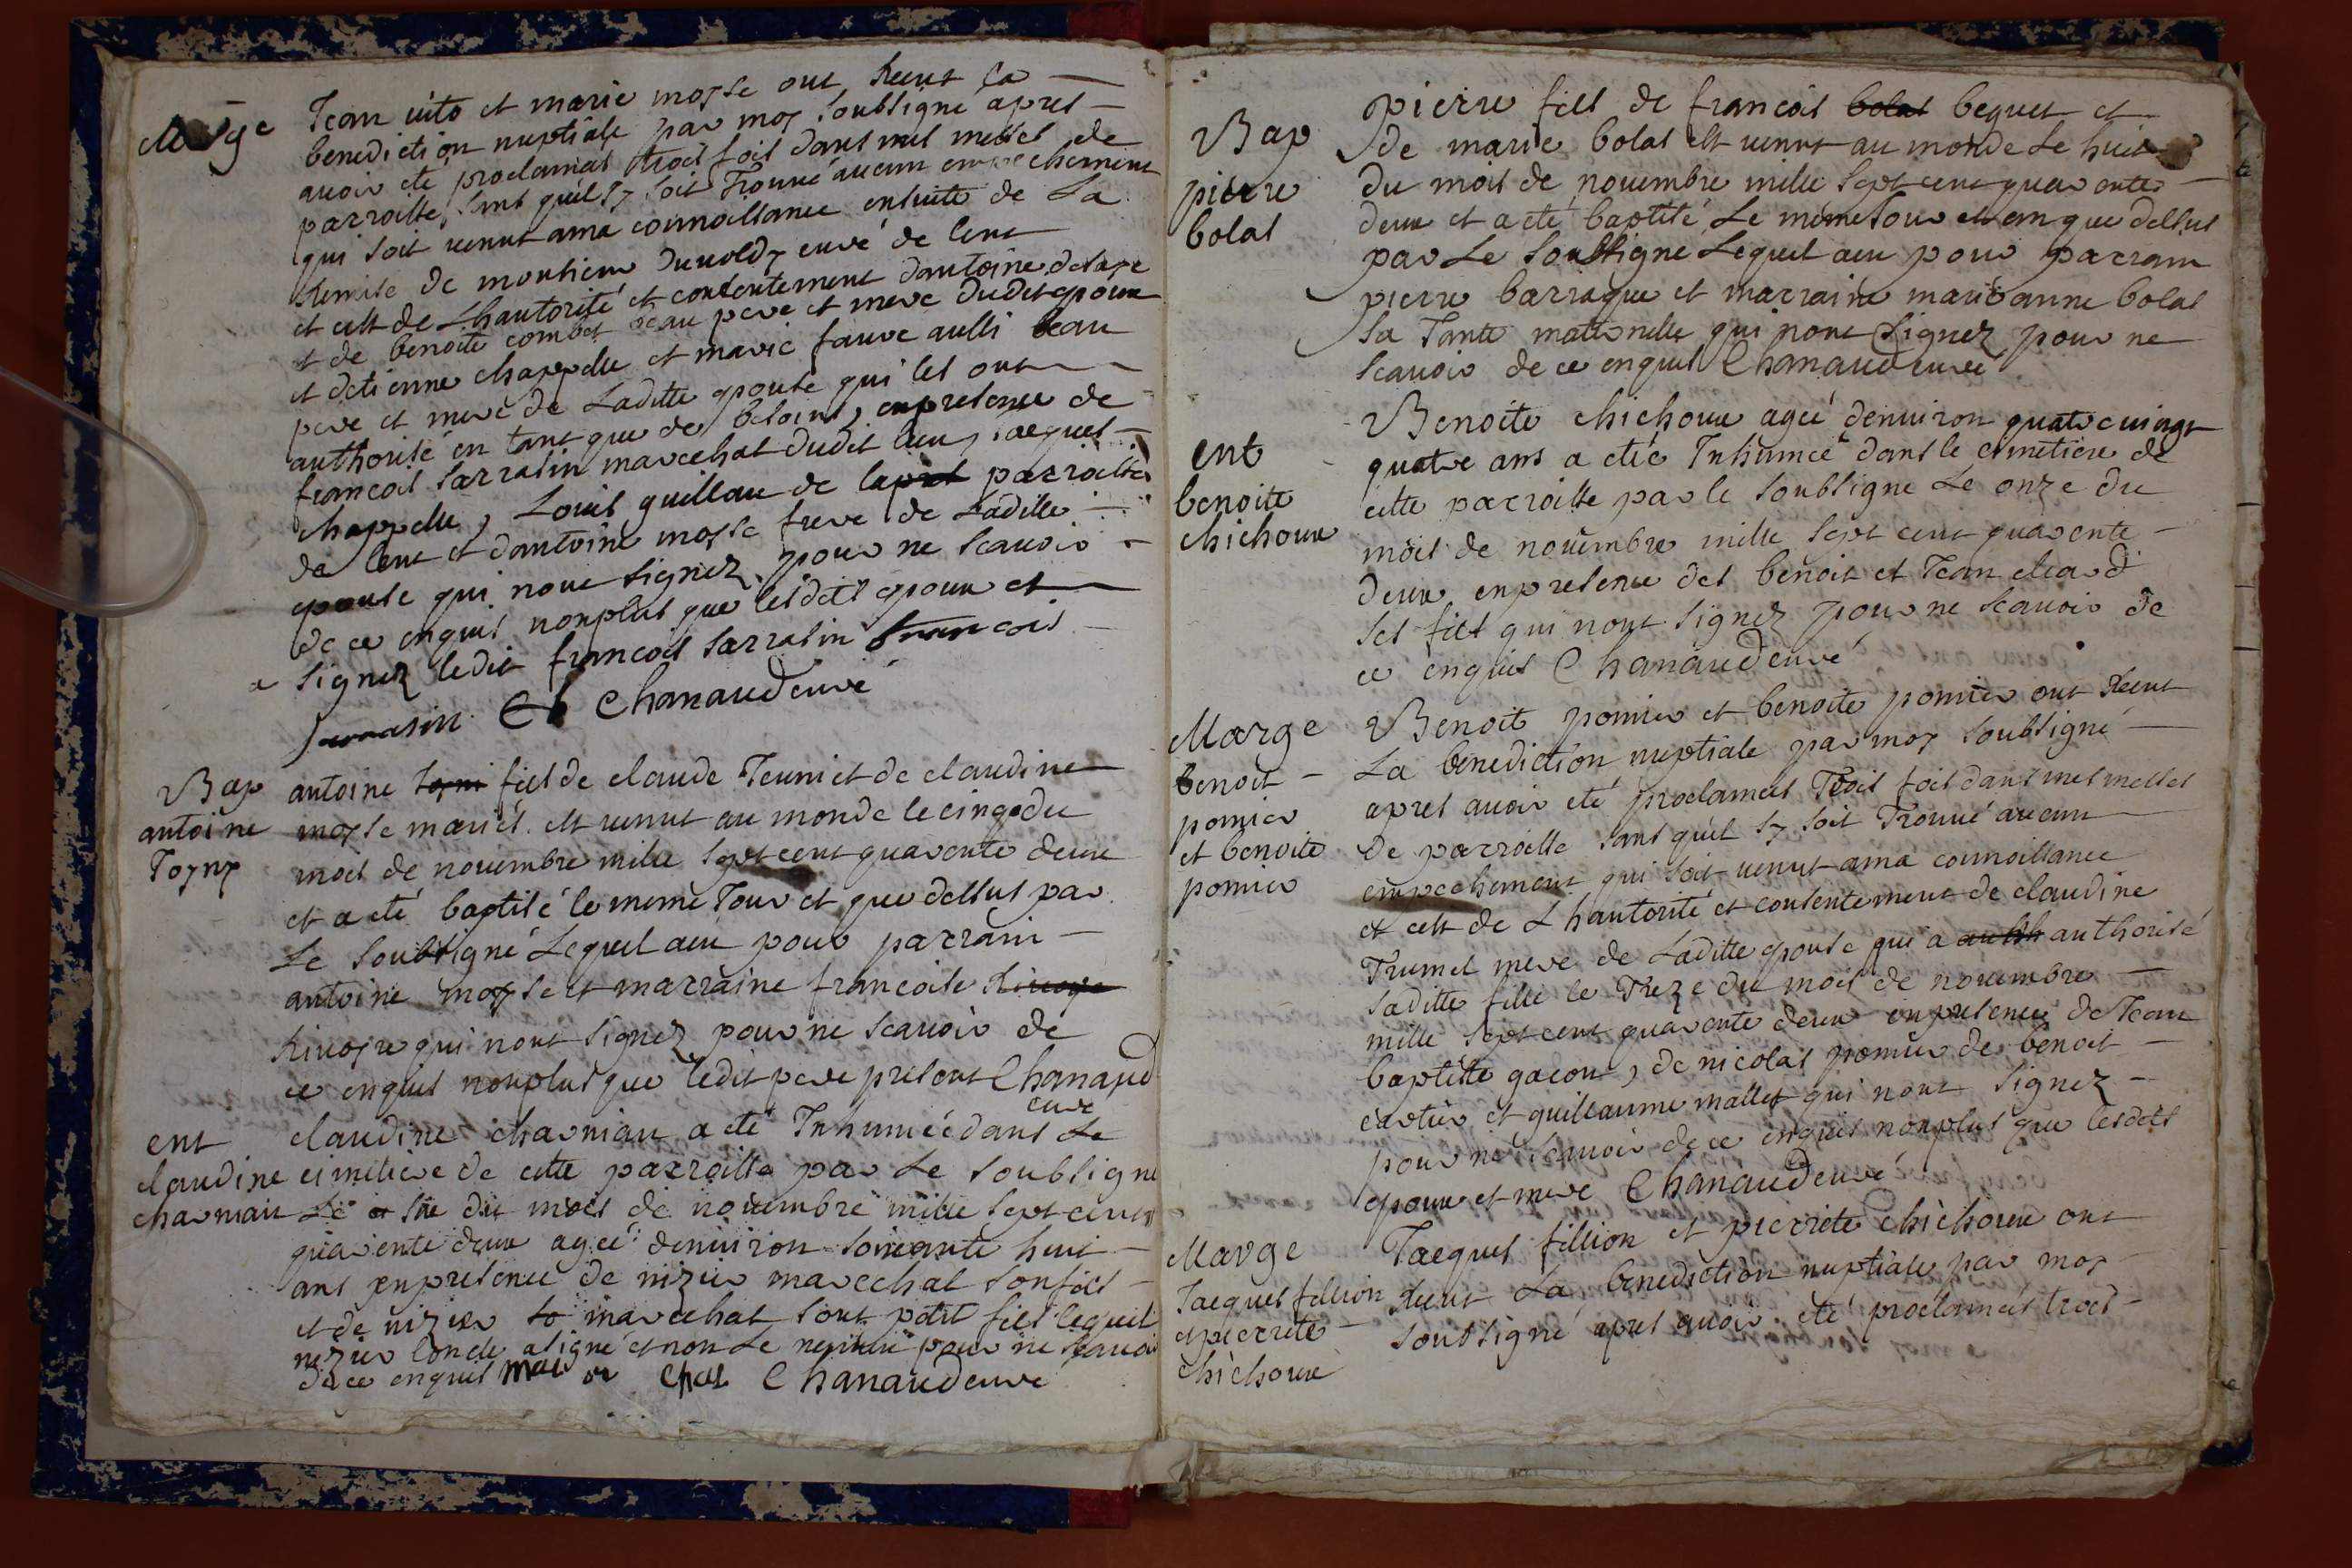 Marge
Jean vito et marie moysse ont Receut La
benediction nuptiale par moy soubsigné apres
avoir eté proclamas trois fois dans mes messes de
parroisse sans quil sy soit Trouvé aucun empechement
qui soit venut ama connoissance ensuite de La
Remise de monsieur Duvoldy curé de lent
et cest de Lhautorité et consentement dantoine
et de benoite combet beau pere et mere dudit epoux
et detienne chappelle et marie favre aussi beau
pere et mere de Laditte epouse qui les ont
authorisé en tant que de besoins, enpresence de
francois sarrasin marechat dudit lieu, jacques
chappelle, Louis guillau de parroisse
de lent et dantoine moysse frere de Laditte
epouse qui nont signez pour ne scavoir
de ce enquis nonplus que lesdits epoux et
a signez ledit francois sarrasin francois
sarrasin Chanaud curé
Bap
antoine
Joyny
antoine fils de claude Jeuni et de claudine
moysse mariés est venut au monde le cinq du
mois de novembre mille sept cent quarente deux
et a eté baptisé le meme Jour et que dessus par
Le soubsigné Lequel aeu pour parrain
antoine moysse et marraine francoise
Rivoyre qui nont signez pour ne scavoir de
ce enquis nonplus que ledit pere present Chanaud
curé
ent
claudine
charnian
claudine charnian a eté Inhumée dans Le
cimetiere de cette parroisse par Le soubsigné
Le six du mois de novembre mille sept cent
quarente deux agée denviron soixante huit
ans enpresence de nizier marechat son fils
et de nizier marechat sont petit fils lequel
nizier loncle a signé et non Le neveu pour ne scavoir
de ce enquis Chanaud curé
Bap
pierre
bolas
pierre fils de francois bolas beguet et
de marie bolas est venut au monde Le huit
du mois de novembre mille sept cent quarente
deux et a eté baptisé Le meme Jour et an que dessus
par Le soubsigné Lequel aeu pour parrain
pierre barraque et marraine marieanne bolas
sa Tante maternelle qui nont signez pour ne
scavoir de ce enquis Chanaud curé
ent
benoite
chichoux
Benoite chichoux agée denviron quatre vingt
quatre ans a etée Inhumée dans le cimetiere de
cette parroisse par le soubsigné Le onze du
mois de novembre mille sept cent quarente
deux enpresence des benoit et Jean cleard
ses fils qui nont signez pour ne scavoir de
ce enquis Chanaud curé
Marge
benoit
pomier
et benoite
pomier
Benoit pomier et benoite pomier ont Receut
La benediction nuptiale par moy soubsigné
apres avoir eté proclamés Trois fois dans mes messes
de parroisse sans quil sy soit Trouvé aucun
empechement qui soit venut ama connoissance
et cest de Lhautorité et consentement de claudine
Trumel mere de Laditte epouse qui a authorisé
saditte fille le Treze du mois de novembre
mille sept cent quarente deux enpresence de Jean
baptiste gacon, de nicolas pomier de benoit
cartier et guillaume mallet qui nont signez
pour ne scavoir de ce enquis nonplus que lesdits
epoux et mere Chanaud curé
Marge
Jacques fillion
et pierrete
chichoux
Jacques fillion et pierrete chichoux ont
Receut La benediction nuptiale par moy
soubsigné apres avoir eté proclamés trois